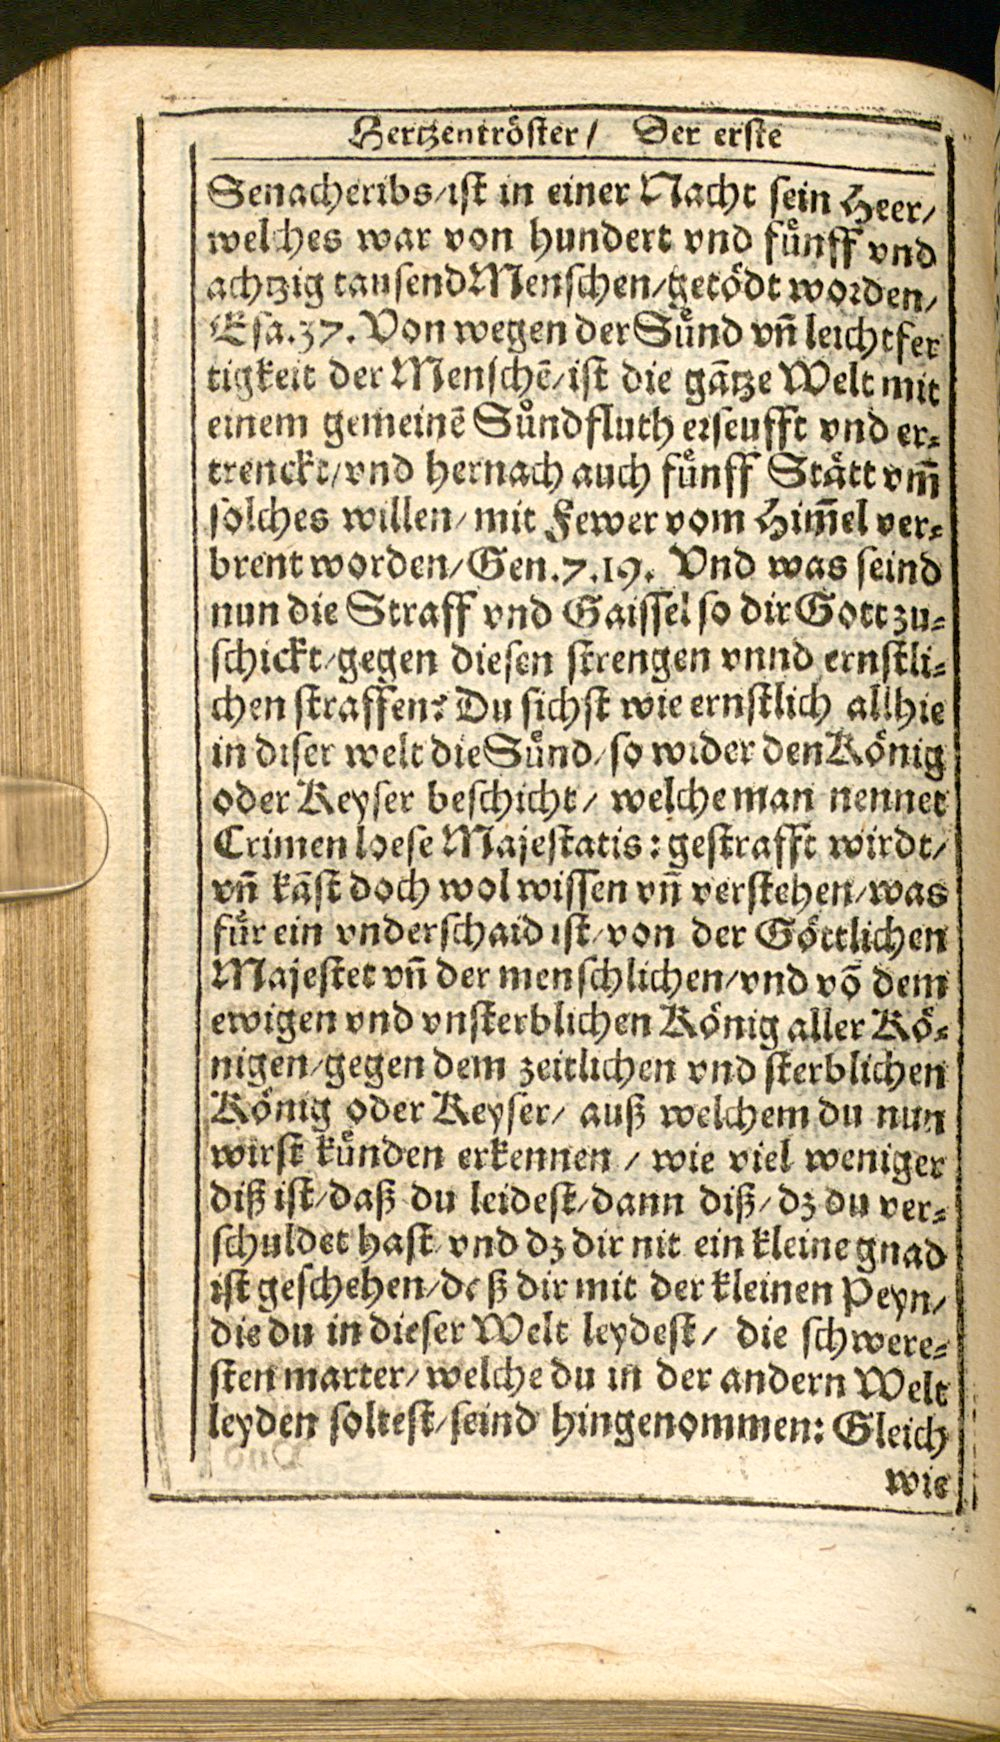 Hertzentröster / Der erste
Senacheribs / ist in einer Nacht sein Heer /
welches war von hundert vnd fuͤnff vnd
achtzig tausend Menschen / getoͤdt worden /
Esa. 37. Von wegen der Suͤnd vn̄ leichtfer
tigkeit der Menschē / ist die gātze Welt mit
einem gemeinē Suͤndfluth erseufft vnd er-
trenckt / vnd hernach auch fuͤnff Staͤtt vm̄
solches willen / mit Fewer vom Him̄el ver-
brent worden / Gen. 7. 19. Vnd was seind
nun die Straff vnd Gaissel so dir Gott zu-
schickt / gegen diesen strengen vnnd ernstli-
chen straffen? Du sichst wie ernstlich allhie
in diser welt die Suͤnd / so wider den Koͤnig
oder Keyser beschicht / welche man nennet
Crimen loese Majestatis: gestrafft wirdt /
vn̄ kāst doch wol wissen vn̄ verstehen / was
fuͤr ein vnderschaid ist / von der Goͤttlichen
Majestet vn̄ der menschlichen / vnd vō dem
ewigen vnd vnsterblichen Koͤnig aller Koͤ-
nigen / gegen dem zeitlichen vnd sterblichen
Koͤnig oder Keyser / auß welchem du nun
wirst kuͤnden erkennen / wie viel weniger
diß ist / daß du leidest / dann diß / dz du ver-
schuldet hast vnd dz dir nit ein kleine gnad
ist geschehen / deß dir mit der kleinen Peyn /
die du in dieser Welt leydest / die schwere-
sten marter / welche du in der andern Welt
leyden soltest / seind hingenommen: Gleich
wie